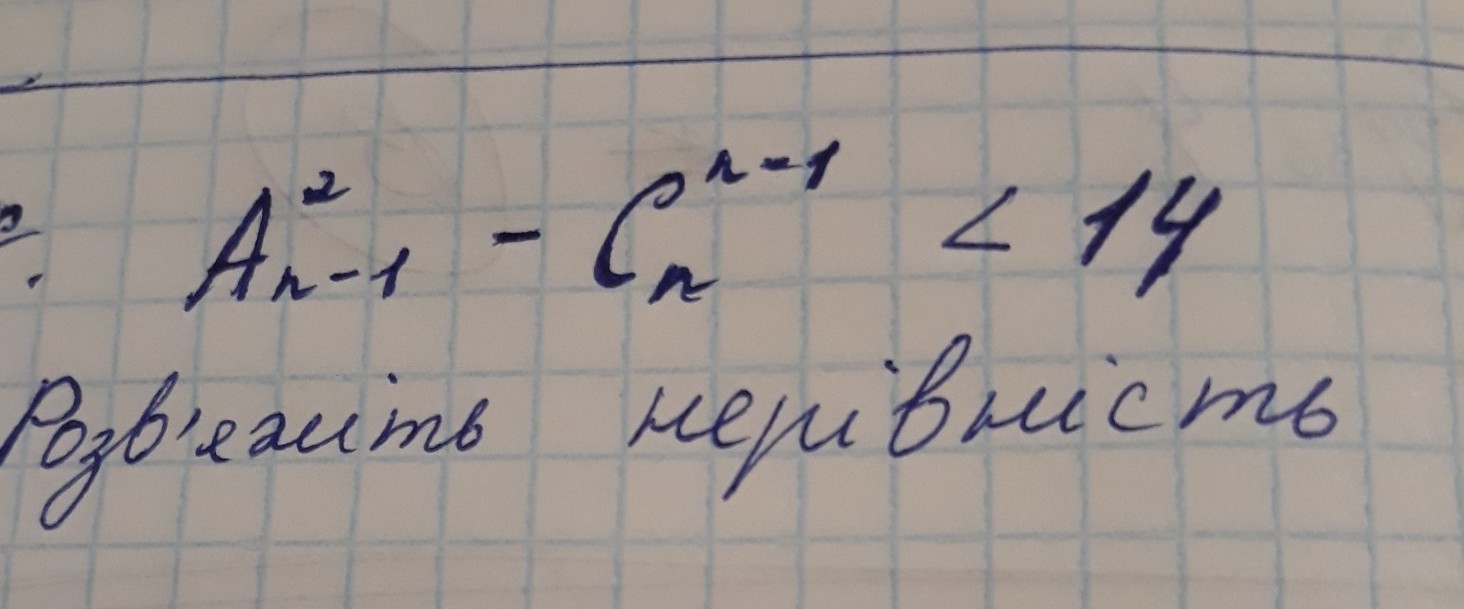 A²ₙ₋₁ - Cₙⁿ⁻¹ < 14
Розв'яжіть нерівність